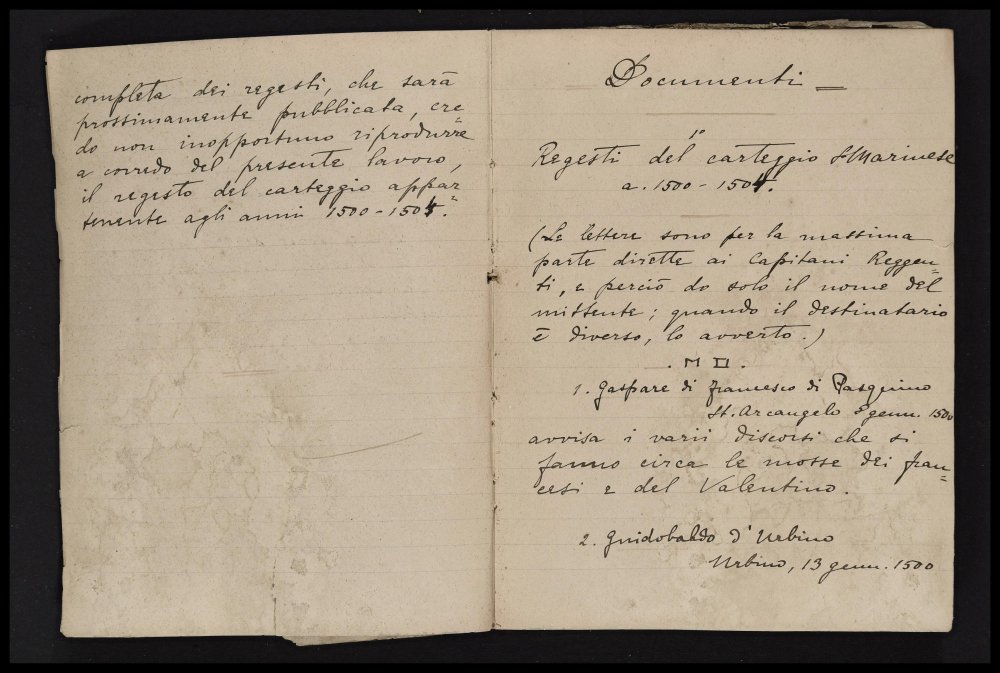 completa dei regesti, che sarà
prossimamente pubblicata, cre=
do non inopportuno riprodurre
a corredo del presente lavoro,
il regesto del carteggio appar=
tenente agli anni 1500-1504.
Documenti
1º
Regesti del carteggio S. Marinese
a. 1500-1504.
(Le lettere sono per la massima
parte dirette ai Capitani Reggen=
ti, e perciò do solo il nome del
mittente; quando il destinatario
è diverso, lo avverto.)
. M D .
1. Gaspare di Francesco di Pasquino
St. Arcangelo 8 genn. 1500
avvisa i varii discorsi che si
fanno circa le mosse dei fran=
cesi e del Valentino.
2. Guidobaldo d'Urbino
Urbino, 13 genn. 1500